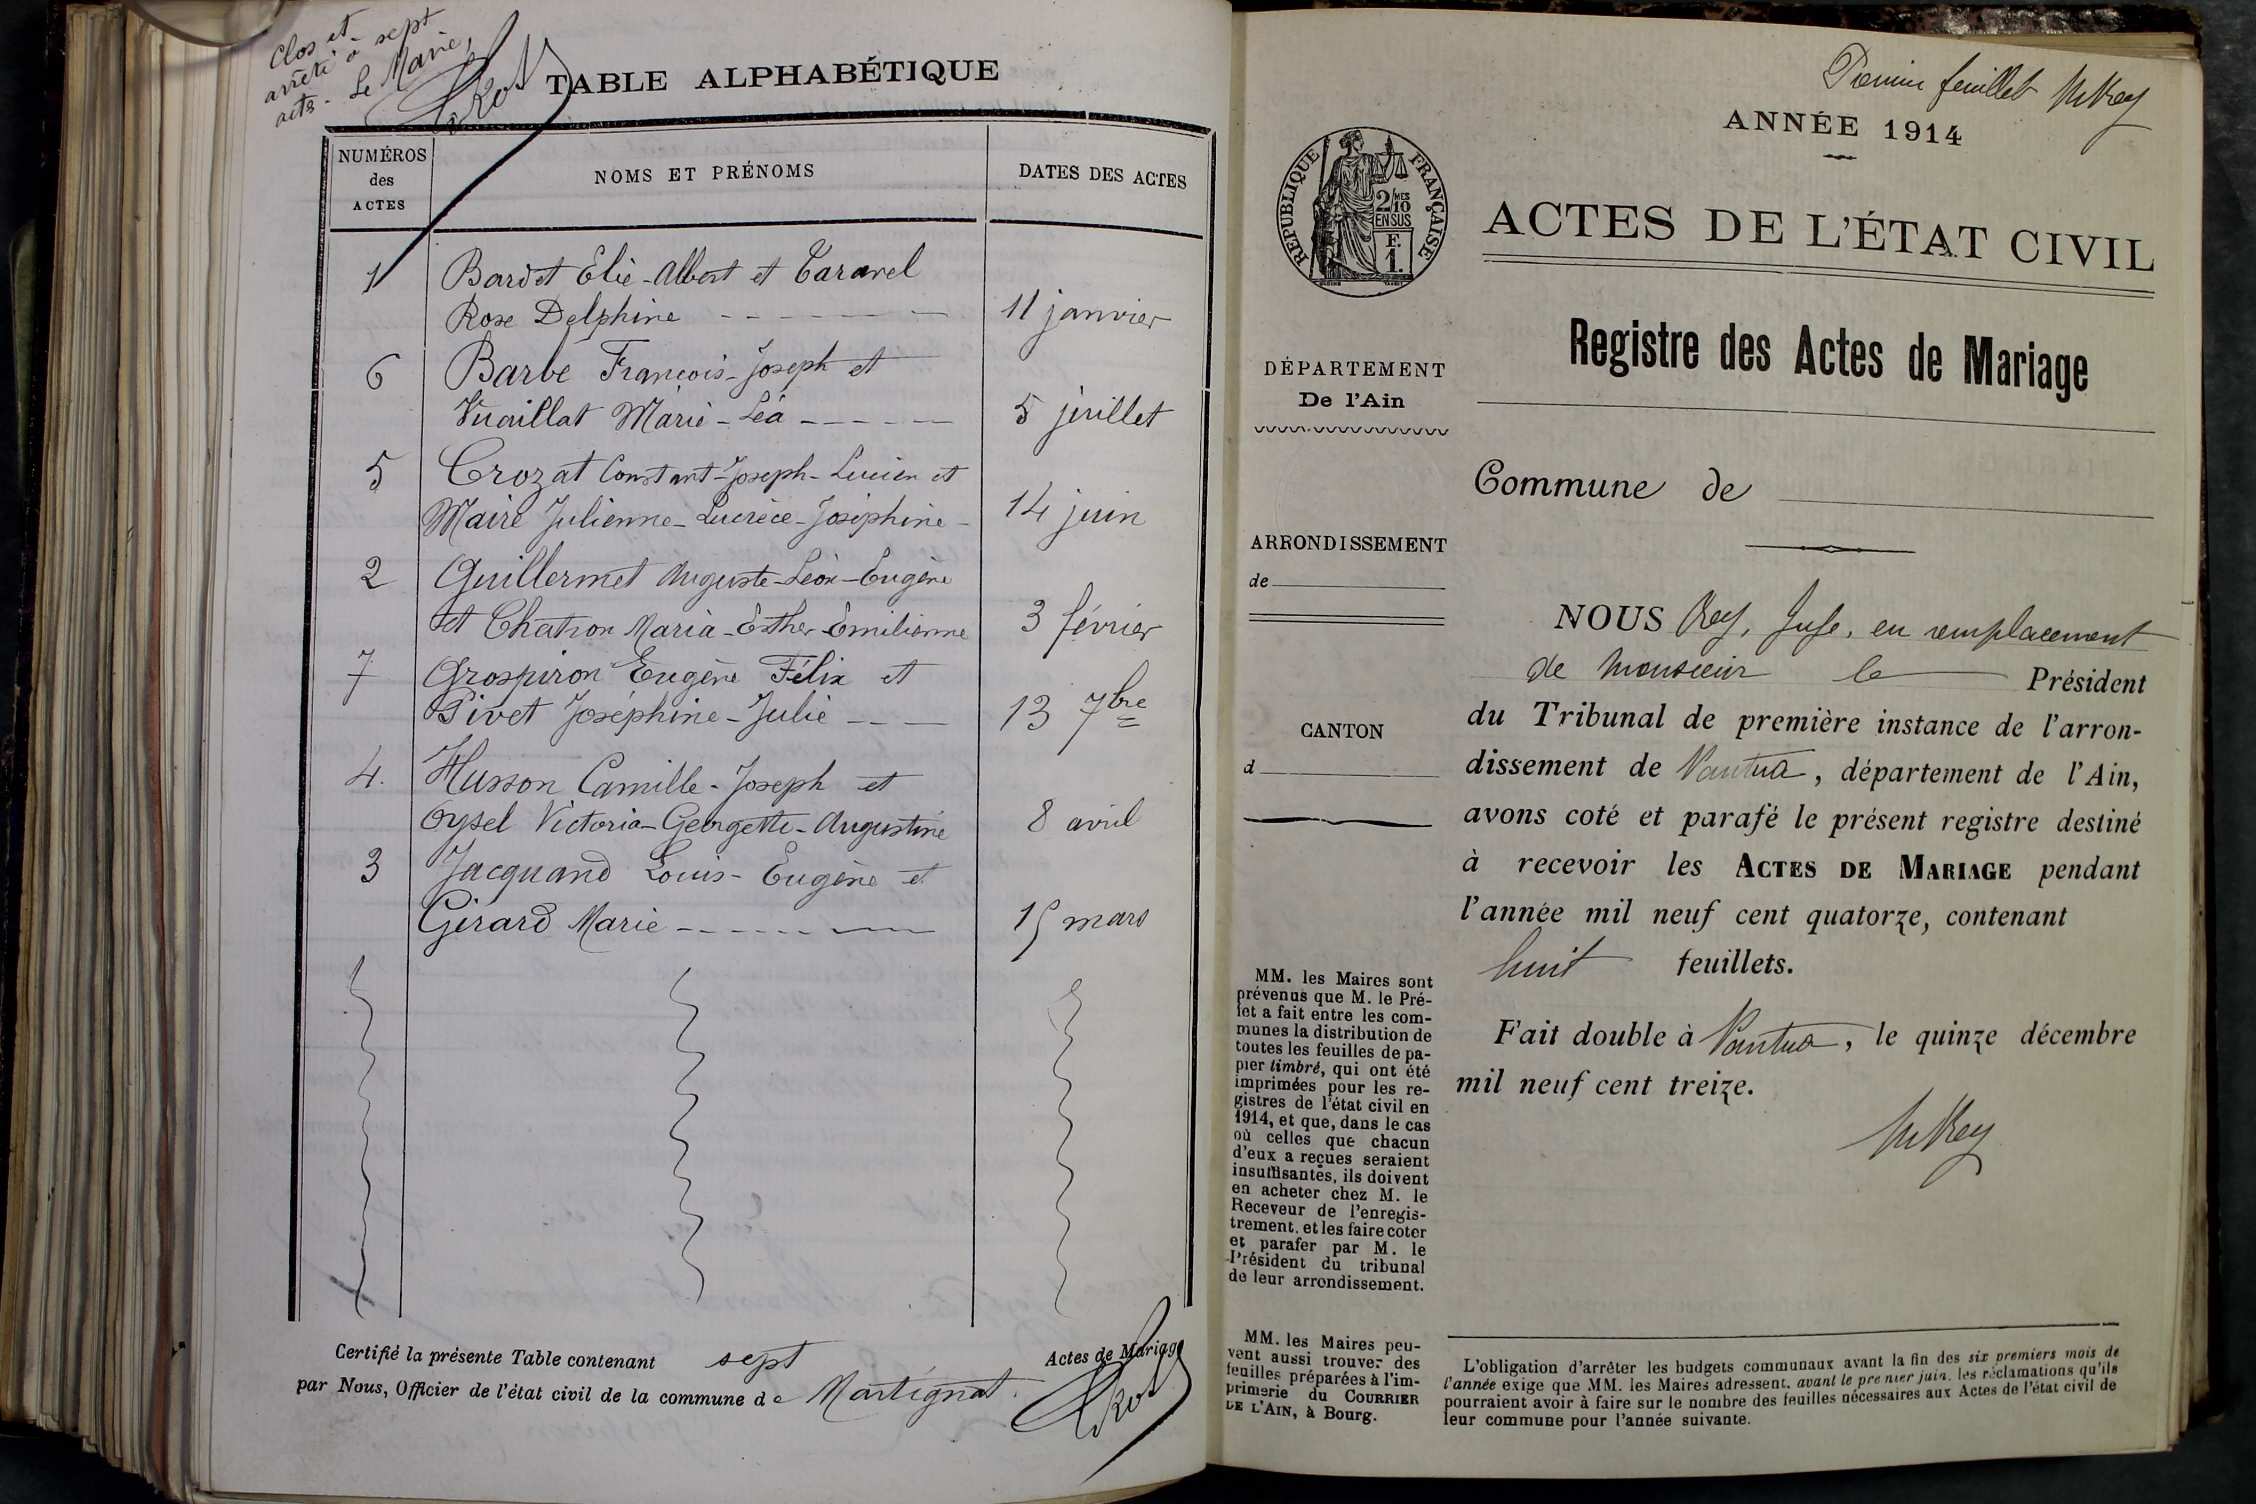 Clos et
arrêté à sept
acts - Le Maire,
TABLE ALPHABÉTIQUE
NUMÉROS
des
ACTES
NOMS ET PRÉNOMS
DATES DES ACTES
1 Bardet Elie-Albert et Taravel
Rose Delphine 11 janvier
6 Barbe François-Joseph et
Vuaillat Marie-Léa 5 juillet
5 Crozat Constant-Joseph-Lucien et
Maire Julienne-Lucrèce-Joséphine 14 juin
2 Guillermet Auguste-Léon-Eugène
et Chatron Maria-Esther-Emilienne 3 février
7 Grospiron Eugène Félix et
Pivet Joséphine-Julie 13 7bre
4. Husson Camille-Joseph et
Oysel Victoria-Georgette-Augustine 8 avril
3 Jacquand Louis-Eugène et
Girard Marie 15 mars
Certifié la présente Table contenant sept Actes de Mariage
par Nous, Officier de l'état civil de la commune de Martignat.
Premier feuillet MRey
ANNÉE 1914
RÉPUBLIQUE FRANÇAISE
2/10 MES
EN SUS
F.
1.
ACTES DE L'ÉTAT CIVIL
Registre des Actes de Mariage
DÉPARTEMENT
De l'Ain
Commune de
ARRONDISSEMENT
de
CANTON
d
NOUS Rey, Juge, en remplacement
de Monsieur le Président
du Tribunal de première instance de l'arron-
dissement de Nantua, département de l'Ain,
avons coté et parafé le présent registre destiné
à recevoir les ACTES DE MARIAGE pendant
l'année mil neuf cent quatorze, contenant
huit feuillets.
Fait double à Nantua, le quinze décembre
mil neuf cent treize.
MRey
MM. les Maires sont
prévenus que M. le Pré-
fet a fait entre les com-
munes la distribution de
toutes les feuilles de pa-
pier timbré, qui ont été
imprimées pour les re-
gistres de l'état civil en
1914, et que, dans le cas
où celles que chacun
d'eux a reçues seraient
insuffisantes, ils doivent
en acheter chez M. le
Receveur de l'enregis-
trement, et les faire coter
et parafer par M. le
Président du tribunal
de leur arrondissement.
MM. les Maires peu-
vent aussi trouver des
feuilles préparées à l'im-
primerie du COURRIER
DE L'AIN, à Bourg.
L'obligation d'arrêter les budgets communaux avant la fin des six premiers mois de
l'année exige que MM. les Maires adressent, avant le premier juin, les réclamations qu'ils
pourraient avoir à faire sur le nombre des feuilles nécessaires aux Actes de l'état civil de
leur commune pour l'année suivante.